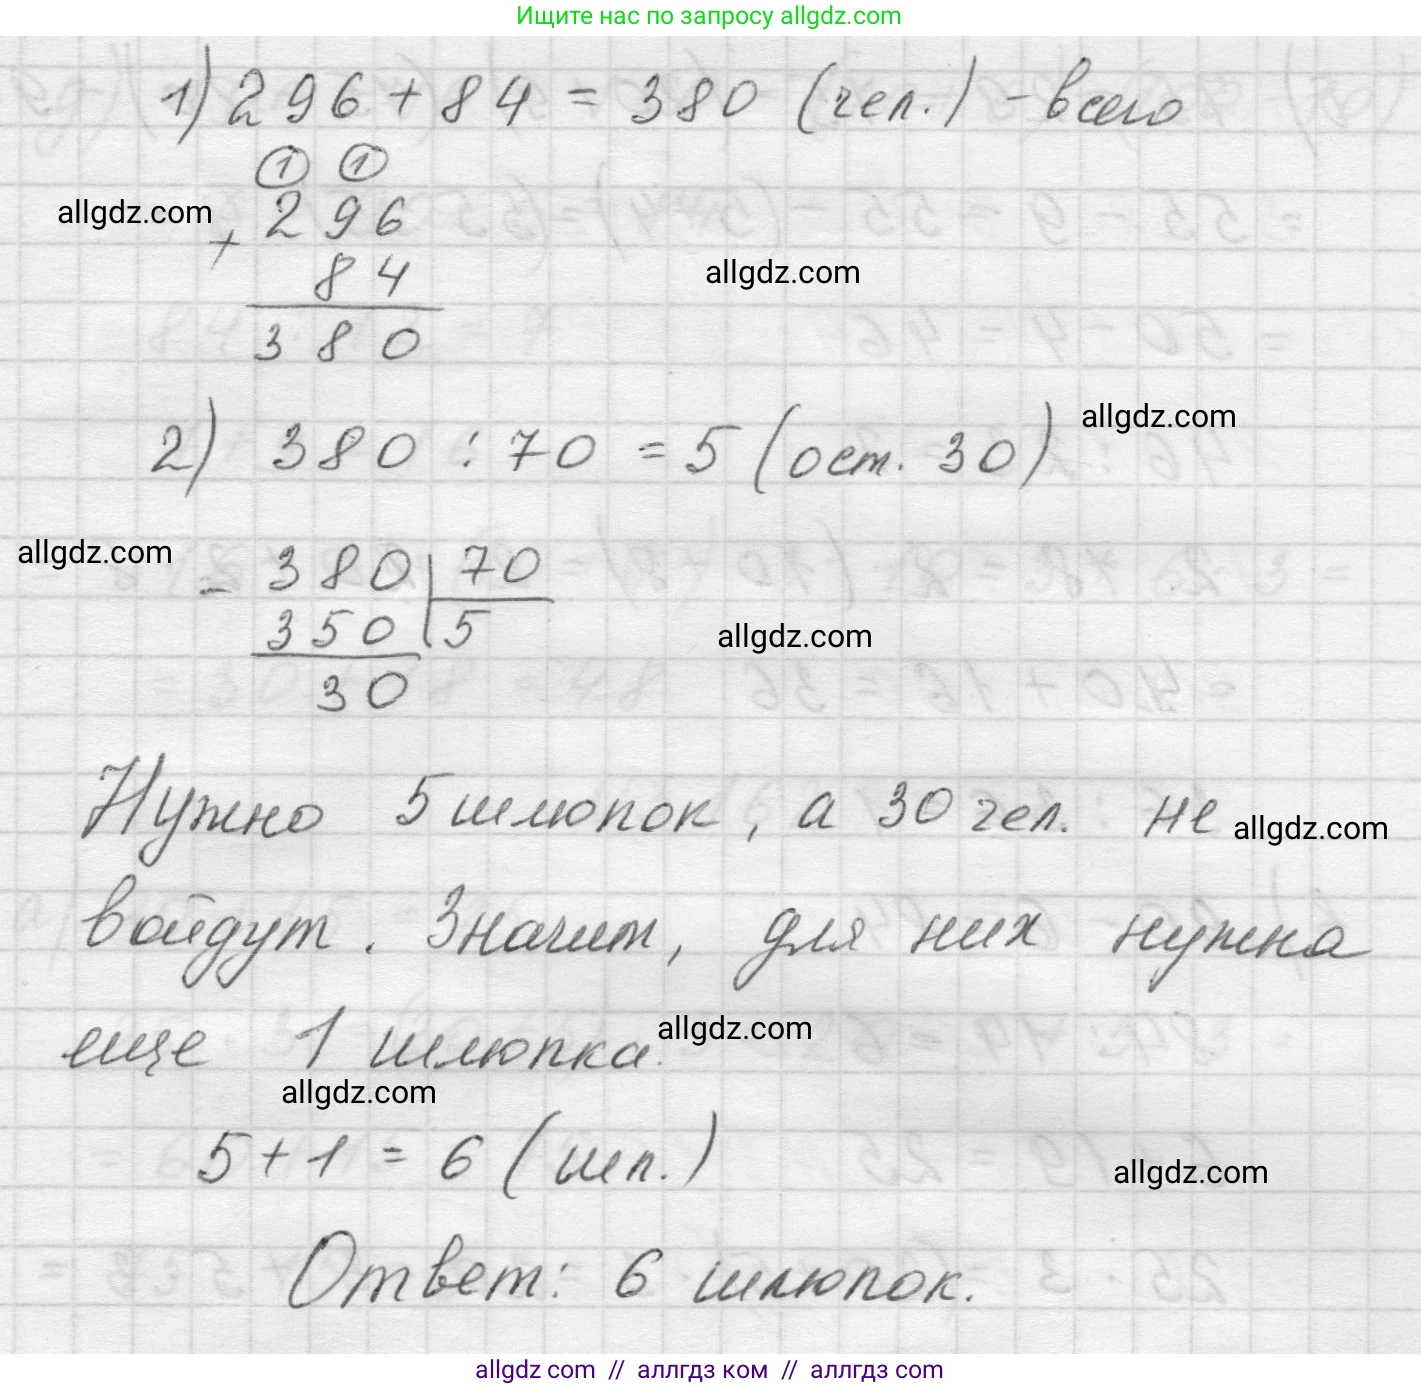 Ищите нас по запросу allgdz.com
1) 296 + 84 = 380 (чел.) - всего
1 1
allgdz.com
296
+
84
allgdz.com
380
allgdz.com
2) 380 : 70 = 5 (ост. 30)
allgdz.com
- 380 70
350 5
allgdz.com
30
Нужно 5 шлюпок, а 30 чел. не
allgdz.com
войдут. Значит, для них нужна
еще 1 шлюпка.
allgdz.com
allgdz.com
5 + 1 = 6 (шл.)
allgdz.com
Ответ: 6 шлюпок.
allgdz com // аллгдз ком // аллгдз.com